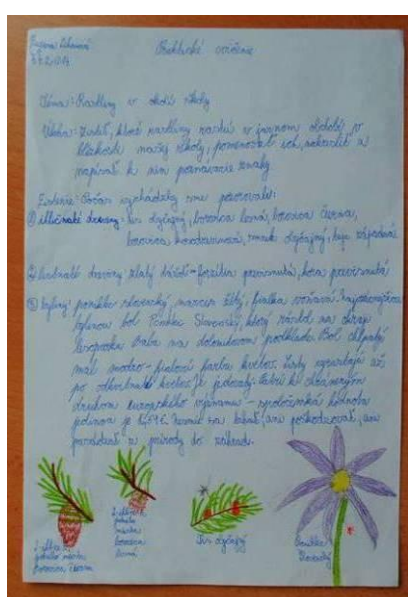 Praktické cvičenie
Téma: Rastliny v okolí školy
Úloha: Zistiť, ktoré rastliny rastú v jarnom období v
blízkosti našej školy, pomenovať ich, nakresliť a
napísať k nim poznávacie znaky
Zistenie: Počas vychádzky sme pozorovali:
① ihličnaté dreviny: Tis obyčajný, borovica lesná, borovica čierna,
borovica smrek obyčajný, tuja západná
② listnaté dreviny zlatý dážď - forzítia previsnutá,
③ byliny: poniklec slovenský, marcia fialka voňavá. Najvzácnejšou
bylinou bol Poniklec Slovenský, ktorý rástol na okraji
lesoparku na dolomitovom podklade. Bol chlpatý
mal modro-fialovú farbu kvetov. Listy vyrastajú až
po odkvitnutí kvetov. Je jedovatý. Patrí ku chráneným
druhom európskeho významu - spoločenská hodnota
jedinca je € Nesmie sa trhať, ani poškodzovať, ani
presádzať z prírody do záhrady.
borovica
lesná
Borovica čierna
Tis obyčajný
Poniklec
Slovenský